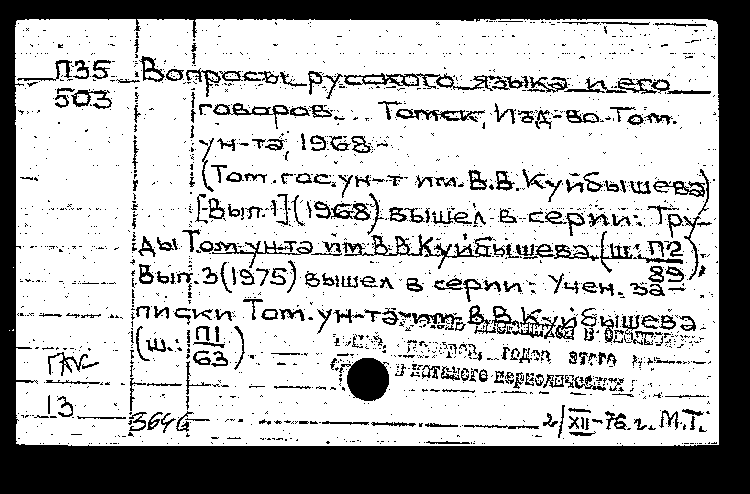 П35 Вопросы русского языка и его
503 говоров... Томск, Изд-во Том.
ун-та, 1968-
(Том. гос. ун-т им. В.В. Куйбышева)
[Вып. 1] (1968) вышел в серии: Тру-
ды Том. ун-та им В.В. Куйбышева. (ш.: П2/89).
Вып. 3 (1975) вышел в серии: Учен. за-
писки Том. ун-та им. В.В. Куйбышева
(ш.: П1/63).
имеющихся в
годов этого
в каталоге периодических
13
3646
2/XII-76 г. М.Т.